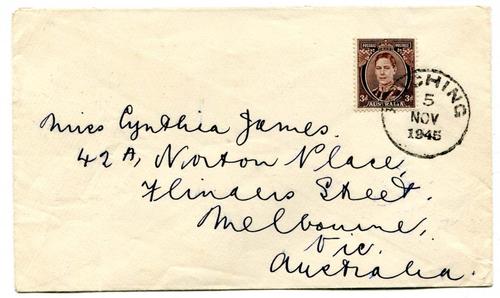 POSTAGE POSTAGE
3d 3d
AUSTRALIA
CHING
5
NOV
1945
Miss Cynthia James.
42A, Norton Place,
Flinders Street.
Melbourne,
Vic.
Australia.